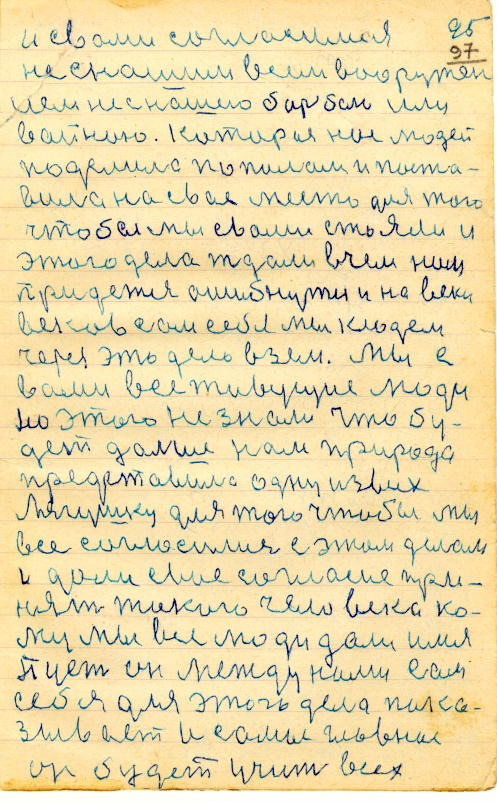 95
97
и свами согласимая
не снашим всем вооружен
ием не снашею барбою или
вайною. Которая нас людей
поделила пополам и поста-
вила на свае место для того
чтобы мы свами стояли и
этого дела ждали в чем нам
придетея ошибнутя и на веки
веков сам себя мы кладем
через это дело взем. Мы с
вами все живущие люди
но этого не знали что бу-
дет дальше нам природа
представила одну из всих
Лягушку для того чтобы мы
все согласилия с этом делам
и дали свае согласие при-
нять такого человека ко-
му мы все люди дали имя
Пуст он между нами сам
себя для этого дела пака-
зывает и самае главное
он будет учит всех